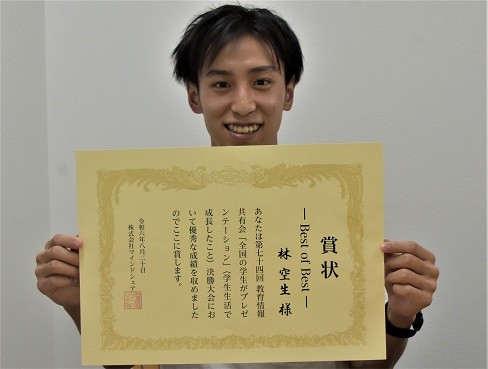 賞状
― Best of Best ―
林 空生 様
あなたは第七十四回 教育情報
共有会「全国の学生がプレゼ
ンテーション」(学生生活で
成長したこと)決勝大会にお
いて優秀な成績を収めました
のでここに賞します。
令和六年八月二十日
株式会社マインドシェア